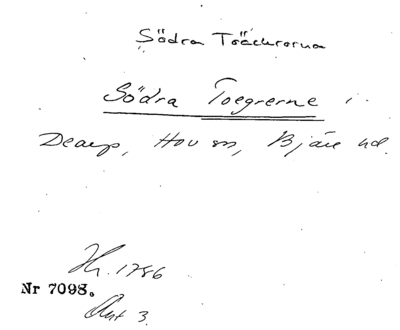 Södra Träckrorna
Södra Toegrerne i
Dearp, Hov sn, Bjäre hd.
Hr. 1786
Nr 7098.
Akt 3.